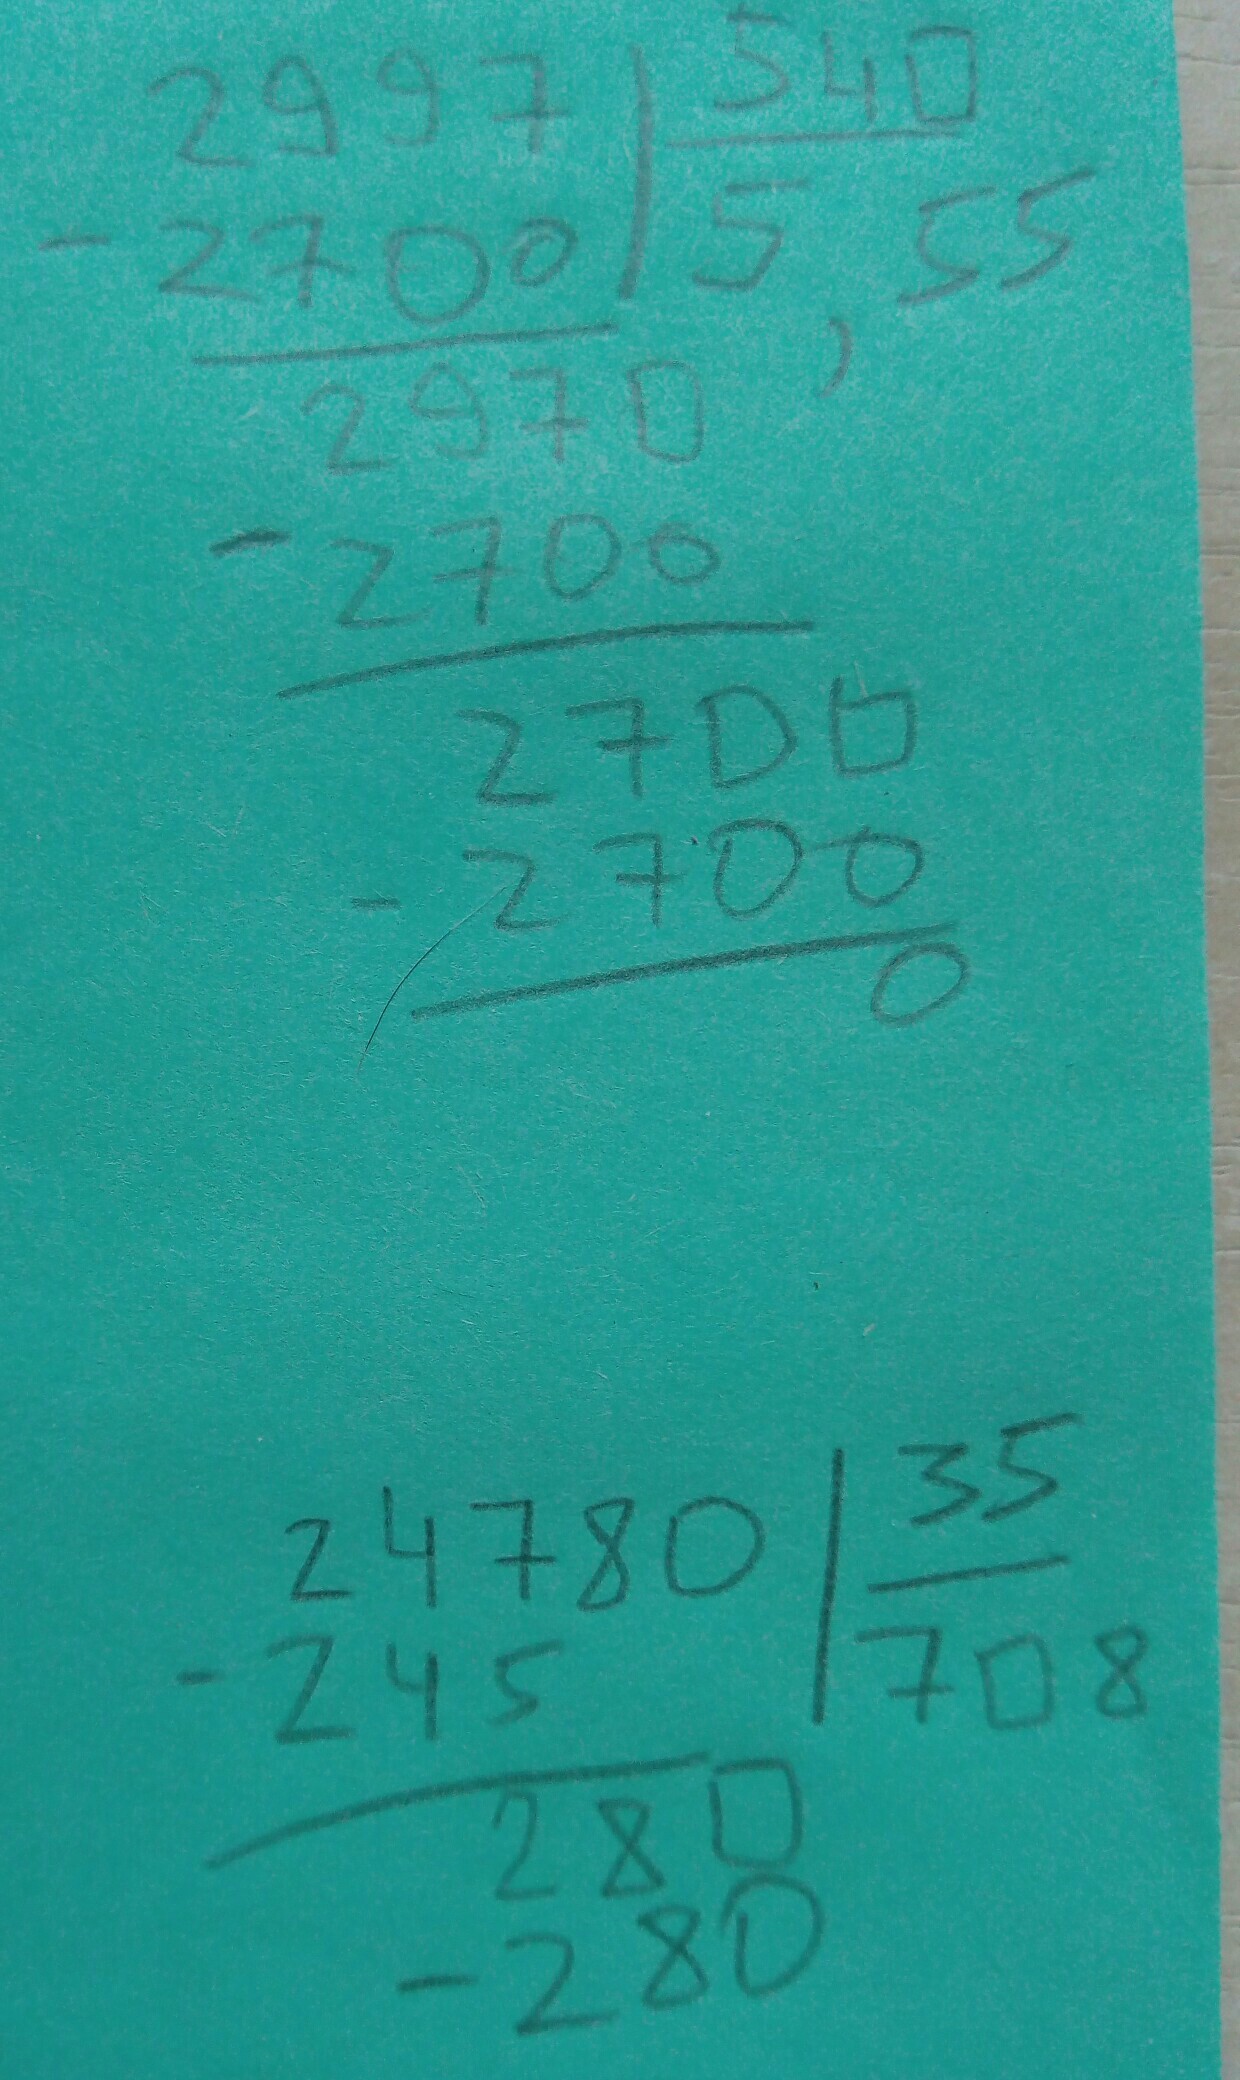 2997 | 540
- 2700 | 5,55
2970
- 2700
2700
- 2700
0
24780 | 35
- 245 | 708
280
- 280